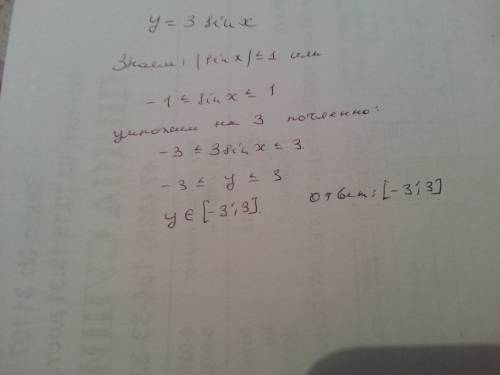 y = 3 sin x
Знаем: |sin x| ≤ 1 или
-1 ≤ sin x ≤ 1
умножаем на 3 почленно:
-3 ≤ 3 sin x ≤ 3
-3 ≤ y ≤ 3
y ∈ [-3; 3].
Ответ: [-3; 3]